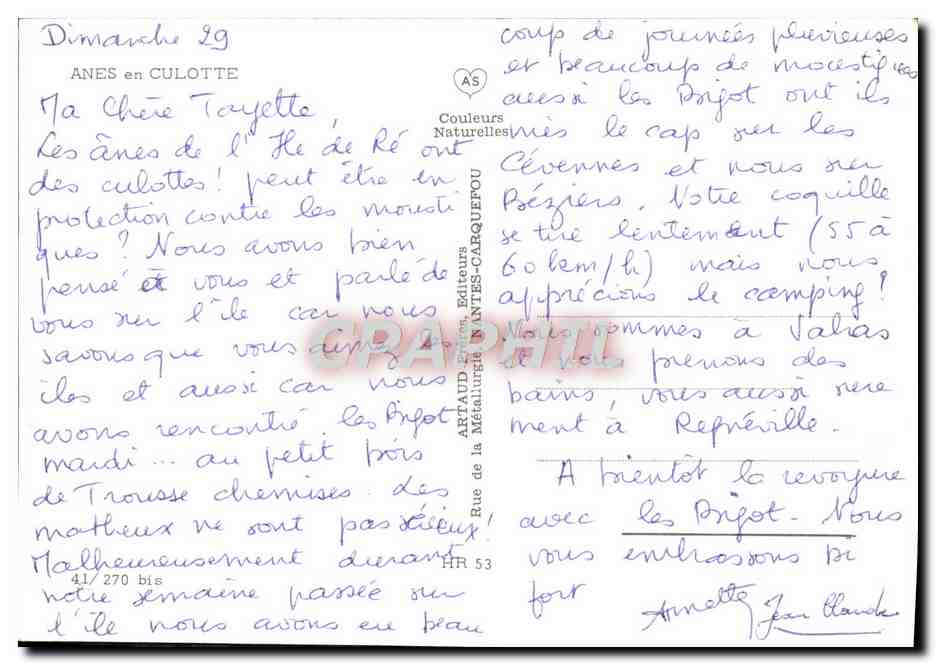 Dimanche 29
ANES en CULOTTE
Ma Chère Tayette,
Les ânes de l'Ile de Ré ont
des culottes! peut être en
protection contre les mousti
ques? Nous avons bien
pensé à vous et parlé de
vous sur l'île car nous
savons que vous aimez les
îles et aussi car nous
avons rencontré les Bigot
mardi... au petit bois
de Trousse chemises. Les
matheux ne sont pas sérieux!
Malheureusement durant
notre semaine passée sur
l'île nous avons eu beau
41/270 bis
AS
Couleurs
Naturelles
ARTAUD Frères, Editeurs
Rue de la Métallurgie NANTES-CARQUEFOU
HR 53
coup de journées pluvieuses
et beaucoup de moustiques
aussi les Bigot ont ils
mis le cap sur les
Cévennes et nous sur
Béziers. Notre coquille
se tire lentement (55 à
60 km/h) mais nous
apprécions le camping!
Nous sommes à Valras
et nous prenons des
bains, vous aussi sure
ment à Regnéville.
A bientôt la revoyure
avec les Bigot. Nous
vous embrassons bi
fort
Annette Jean Claude
CPAPHIL